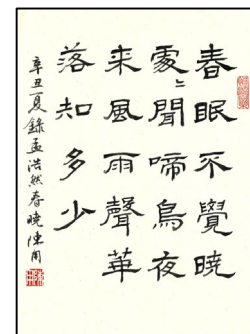 春眠不覺曉
處〻聞啼鳥夜
来風雨聲華
落知多少
辛丑夏錄孟浩然春曉陳